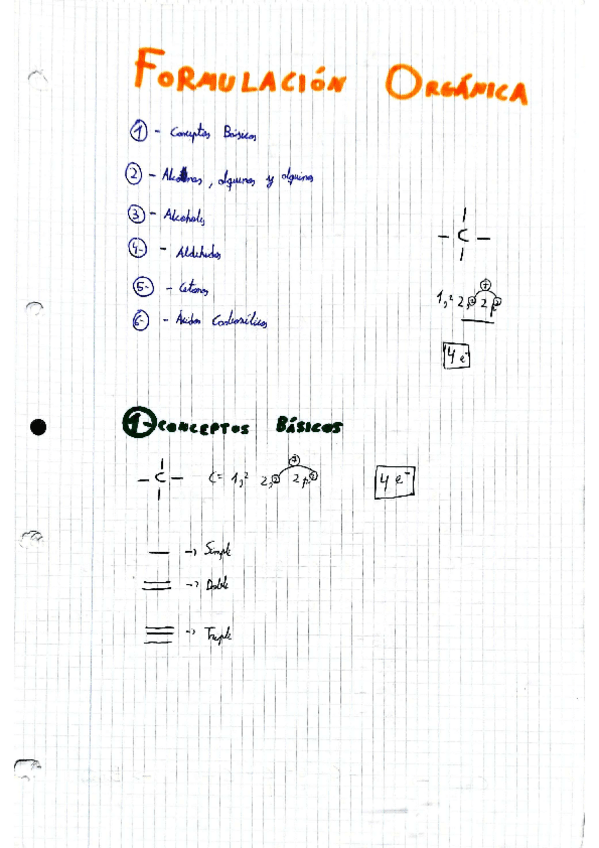 FORMULACIÓN ORGÁNICA
① - Conceptos Básicos
② - Alcanos, alquenos y alquinos
③ - Alcoholes
④- - Aldehidos
⑤- - Cetonas
⑥- - Ácidos Carboxílicos
- C -
1s² 2s② 2p②
+
4 e⁻
①- CONCEPTOS BÁSICOS
- C - C = 1s² 2s② 2p② 4 e⁻
+
— -> Simple
= -> Doble
≡ -> Triple